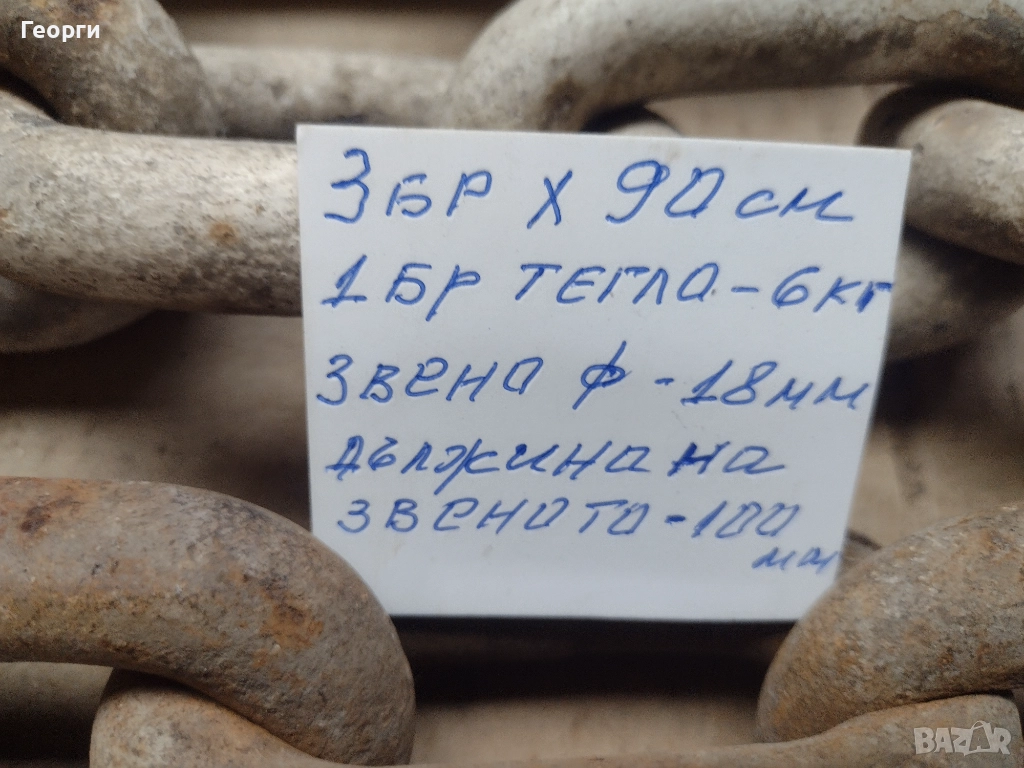 Георги
3 БР X 90 см
1 БР ТЕГЛА - 6 кг
ЗВЕНА ф - 18 мм
ДЪЛЖИНА НА
ЗВЕНОТО - 100
мм
BAZAR